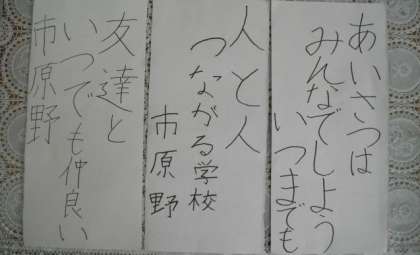 あいさつは
みんなでしよう
いつまでも
人と人
つながる学校
市原野
友達と
いつでも仲良い
市原野